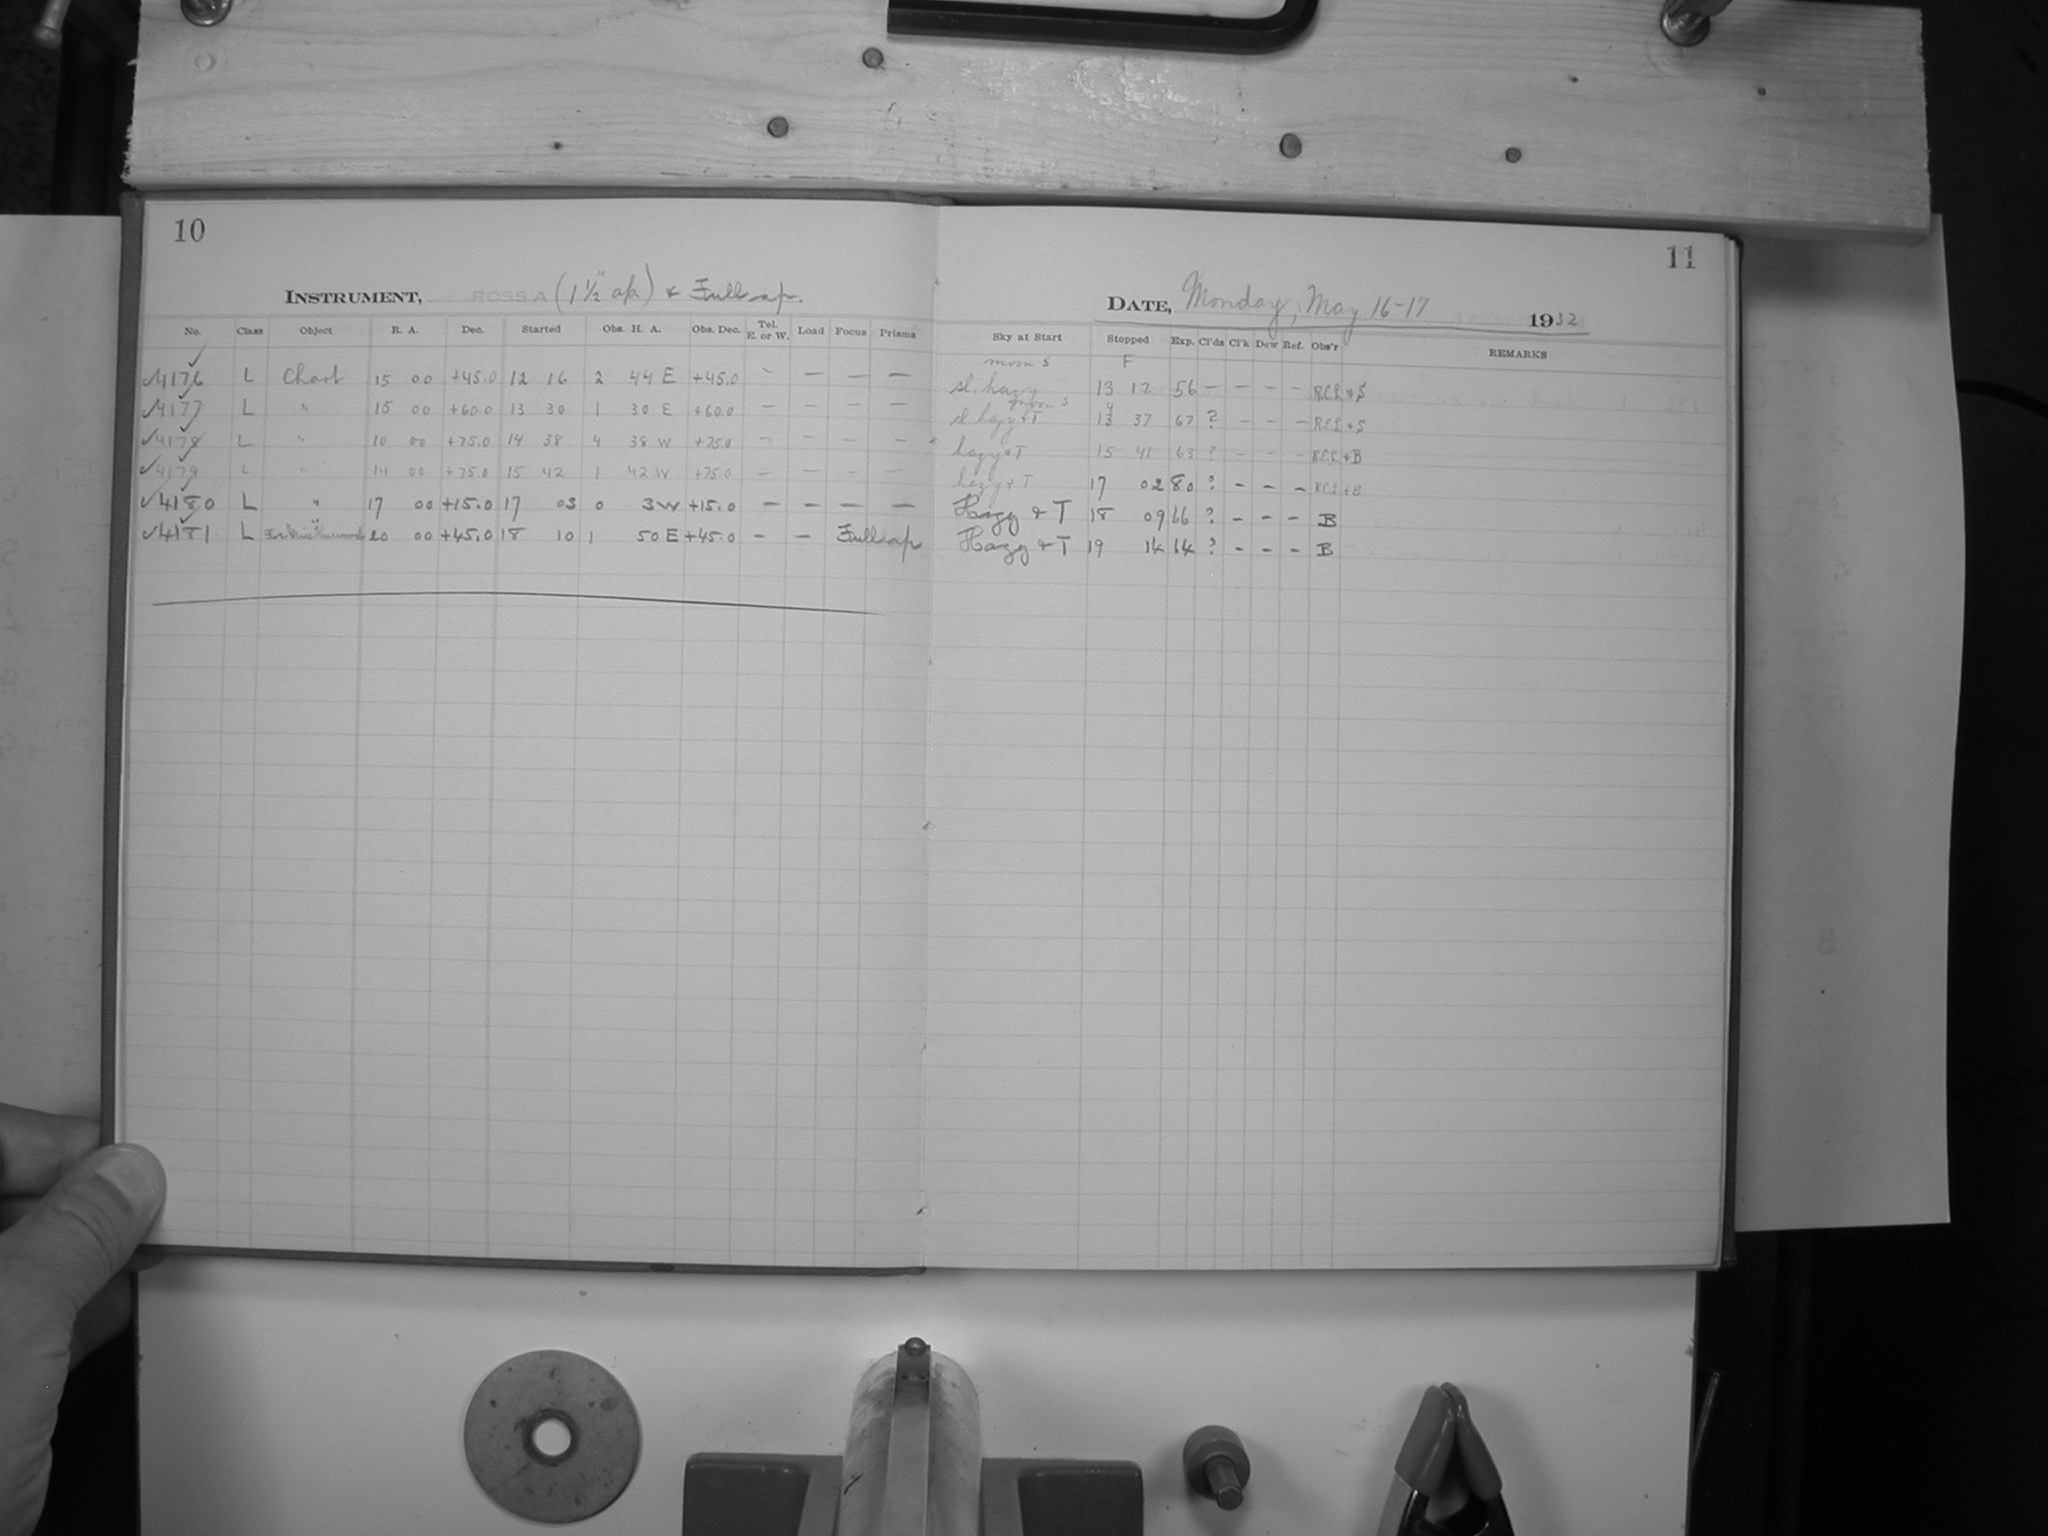 10
INSTRUMENT, ROSS A (1 1/2" ap) & Full ap.
No. Class Object R. A. Dec. Started Obs. H. A. Obs. Dec. Tel. E. or W. Load Focus Prisms
✓4176 L Chart 15 00 +45.0 12 16 2 44 E +45.0 - - - -
✓4177 L " 15 00 +60.0 13 30 1 30 E +60.0 - - - -
✓4178 L " 10 00 +75.0 14 38 4 38 W +75.0 - - - -
✓4179 L " 14 00 +75.0 15 42 1 42 W +75.0 - - - -
✓4180 L " 17 00 +15.0 17 03 0 3 W +15.0 - - - -
✓4181 L " 20 00 +45.0 18 10 1 50 E +45.0 - - Full ap
11
DATE, Monday, May 16-17 1932
Sky at Start Stopped Exp. Cl'ds Cl'k Dew Ref. Obs'r REMARKS
moon S F
sl. hazy 13 12 56 - - - - RCL & S
moon S
sl hazy & T 37 67 ? - - - RCL & S
hazy & T 15 41 63 ? - - - RCL & B
hazy & T 17 02 80 ? - - - RCL & B
Hazy & T 18 09 66 ? - - - B
Hazy & T 19 14 64 ? - - - B